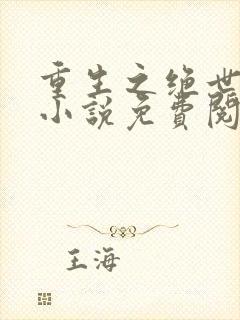 重生之绝世
小说免費閱
王海